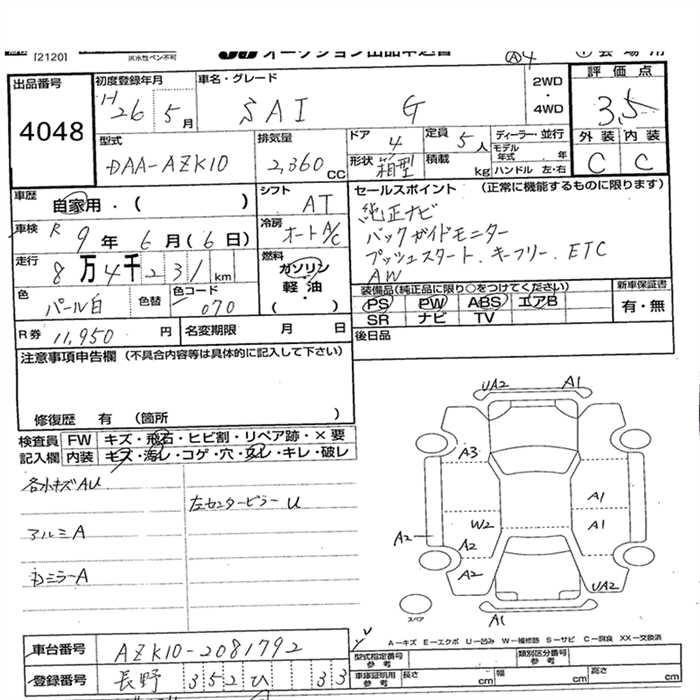 [2120]
A4
出品番号
4048
初度登録年月
H26 5月
車名・グレード
SAI G
2WD
・
4WD
評価点
3.5
外装 内装
C C
型式
DAA-AZK10
排気量
2,360 CC
ドア
4
定員
5人
形状
箱型
積載
kg
ディーラー・並行
モデル年式 . 年
ハンドル 左・右
車歴
自家用・( )
車検
R 9年6月(6日)
走行
8万4千231km
色
パール白
色替
色コード
070
シフト
AT
冷房
オートA/C
燃料
ガソリン
・
軽油
( )
セールスポイント (正常に機能するものに限ります)
純正ナビ
バックガイドモニター
プッシュスタート、キーフリー、ETC
AW
装備品(純正品に限り○をつけてください)
PS PW ABS エアB
SR ナビ TV
新車保証書
有・無
後日品
R券 11,950 円
名変期限 月 日
注意事項申告欄 (不具合内容等は具体的に記入して下さい)
修復歴 有 (箇所 )
検査員記入欄
FW キズ・飛石・ヒビ割・リペア跡・×要
内装 キズ・汚レ・コゲ・穴・スレ・キレ・破レ
各小キズAU
アルミA
左センターピラーU
UA2 A1
A3
A1
W2 A1
A2
A2
A2
UA2
A1
スペア
A-キズ E-エクボ U-凹み W-補修跡 S-サビ C-腐食 XX-交換済
車台番号
AZK10-2081792
登録番号
長野 352 ひ 33
型式指定番号
参考
類別区分番号
参考
車庫証明用
参考
長さ cm
幅 cm
高さ cm